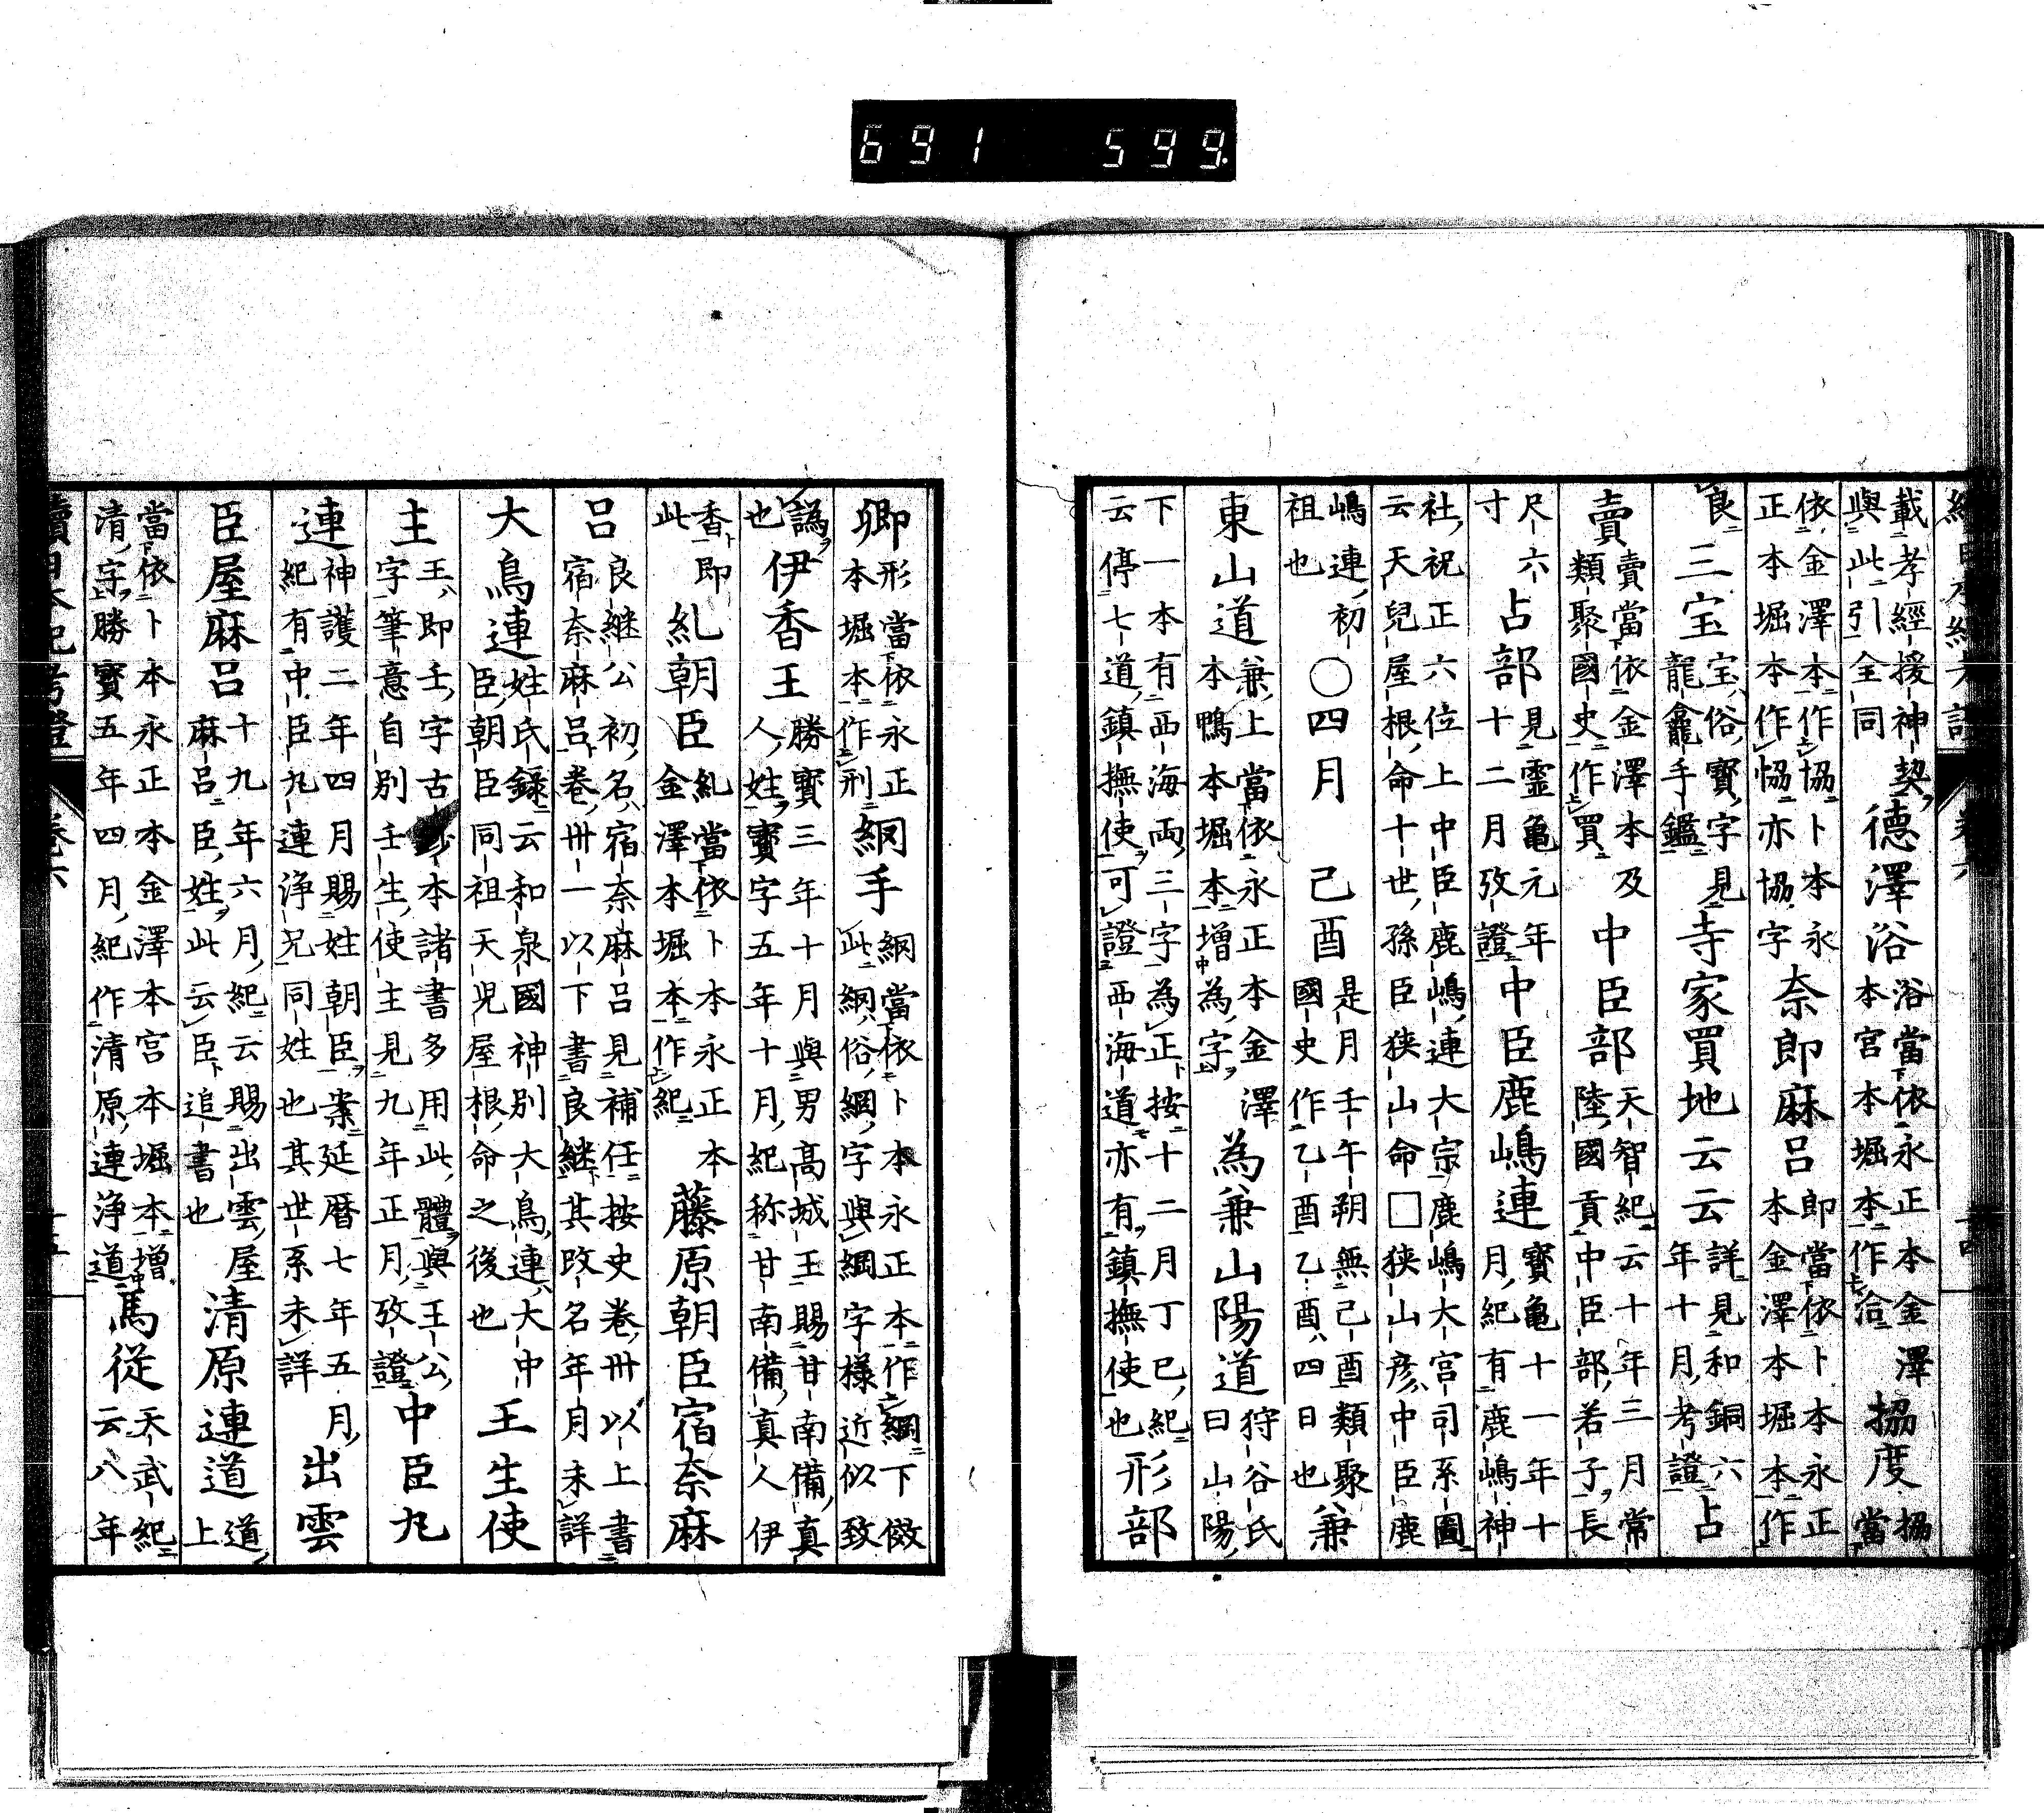 691 599.
載孝經援神契
與此引全同
德澤洽
浴當依永正本金澤
本宮本堀本作洽
拹度
拹當
依金澤本作協卜本永
正本堀本作恊亦協字
奈即麻呂
即當依卜本永正
本金澤本堀本作
良
三宝
宝俗寶字見
龍龕手鑑
寺家買地云云
詳見和銅六
年十月考證
占
賣
賣當依金澤本及
類聚國史作買
中臣部
天智紀云十年三月常
陸國貢中臣部若子長
尺六
寸
占部
見霊亀元年
十二月攷證
中臣鹿嶋連
寶亀十一年十
月紀有鹿嶋神
社祝正六位上中臣鹿嶋連大宗鹿嶋大宮司系圖
云天兒屋根命十世孫臣狭山命□狭山彦中臣鹿
嶋連初
祖也
○四月
己酉
是月壬午朔無己酉類聚
國史作乙酉乙酉四日也
兼
東山道
兼上當依永正本金澤
本鴨本堀本增為字
為兼山陽道
狩谷氏
曰山陽
下一本有西海両三字為正按十二月丁巳紀
云停七道鎮撫使可證西海道亦有鎮撫使也
形部
卿
形當依永正
本堀本作刑
綱手
綱當依卜本永正本作綱下倣
此綱俗綱字與綱字様近似致
譌
也
伊香王
勝寳三年十月與男髙城王賜甘南備真
人姓寳字五年十月紀称甘南備真人伊
香即
此
糺朝臣
糺當依卜本永正本
金澤本堀本作紀
藤原朝臣宿奈麻
呂
良継公初名宿奈麻呂見補任按史卷卅以上書
宿奈麻呂卷卅一以下書良継其改名年月未詳
大鳥連
姓氏録云和泉國神別大鳥連大中
臣朝臣同祖天児屋根命之後也
王生使
主
王即壬字古抄本諸書多用此體與王公
字筆意自別壬生使主見九年正月攷證
中臣九
連
神護二年四月賜姓朝臣案延暦七年五月
紀有中臣丸連浄兄同姓也其世系未詳
出雲
臣屋麻呂
十九年六月紀云賜出雲屋
麻呂臣姓此云臣追書也
清原連道
道上
當依卜本永正本金澤本宮本堀本增
清字勝寳五年四月紀作清原連浄道
馬従
天武紀
云八年
續日本紀考證
卷六
十五